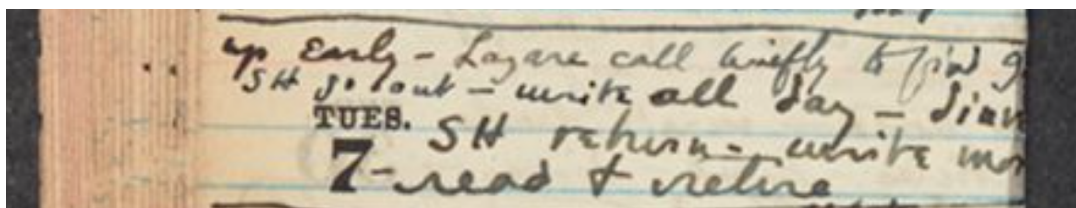 up early - Lazare call briefly to find
SH go out - write all day -
TUES. SH return - write
7 - read & retire